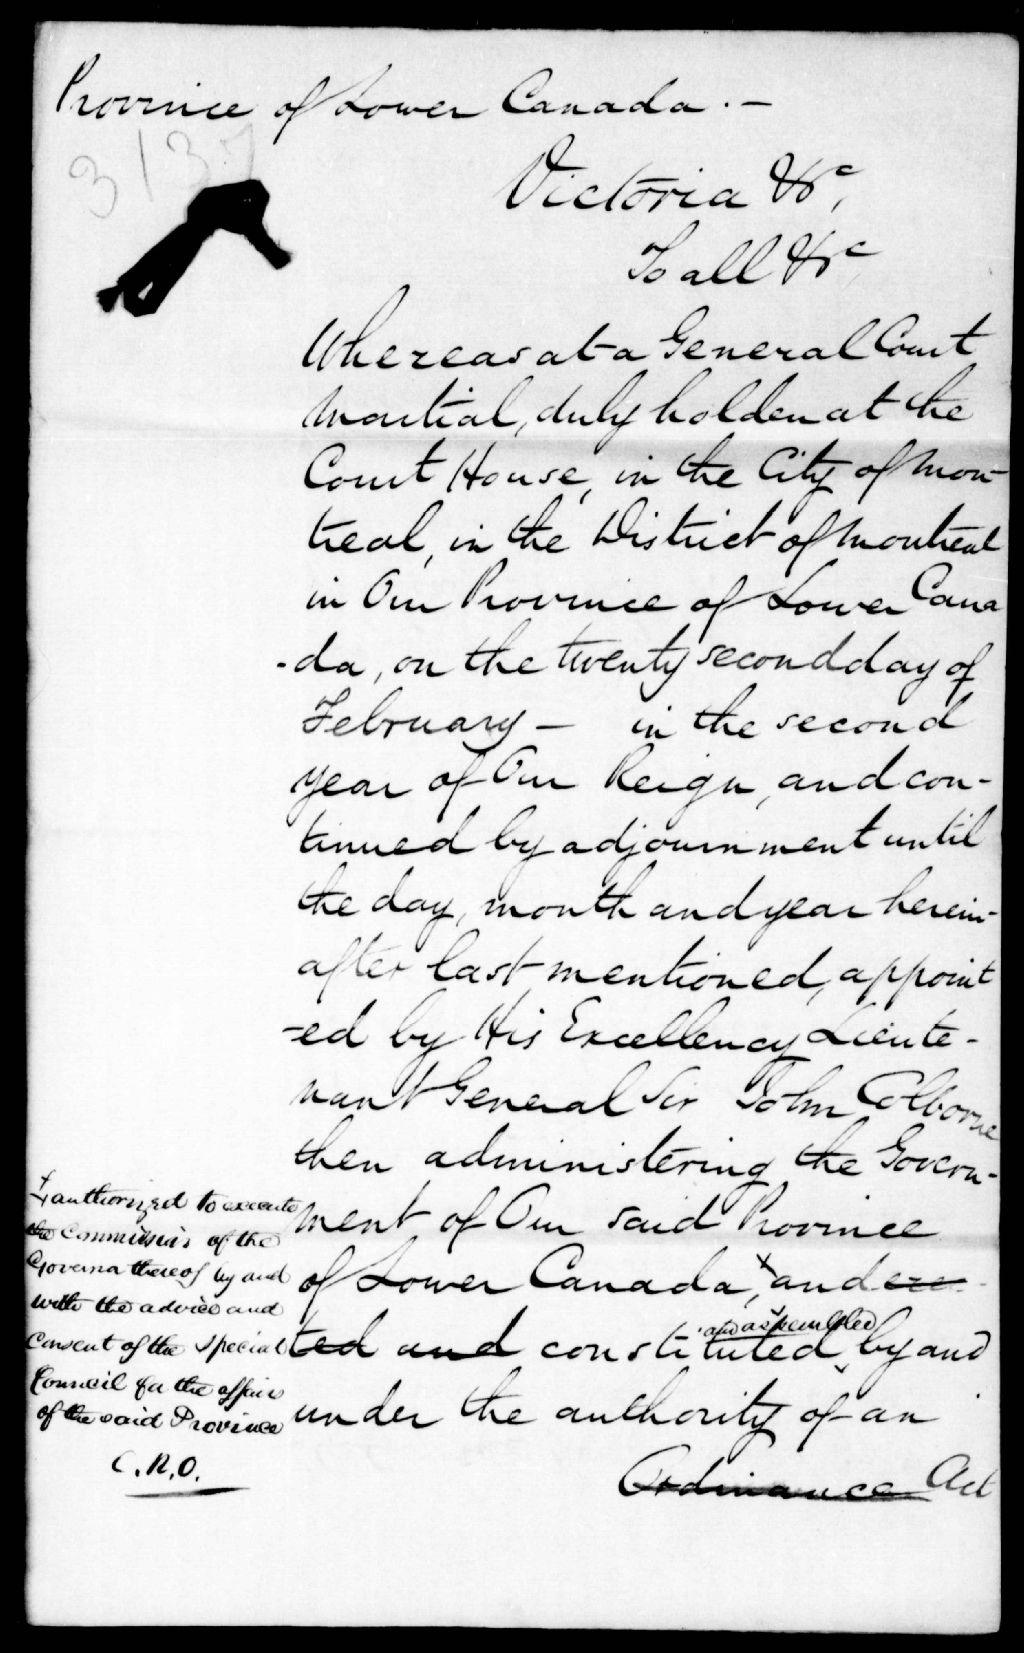 Province of Lower Canada . —
3137
Victoria &c,
To all &c
Whereas at a General Court
Martial, duly holden at the
Court House, in the City of Mon-
treal, in the District of Montreal
in Our Province of Lower Cana
-da, on the twenty second day of
February — in the second
year of Our Reign, and con-
tinued by adjournment until
the day, month and year herein-
after last mentioned, appoint
-ed by His Excellency Lieute-
nant General Sir John Colborne
then administering the Govern-
ment of Our said Province
of Lower Canada, x and crea-
ted and constituted and assembled by and
under the authority of an
Ordinance Act
x authorized to execute
the Commission of the
Governor thereof by and
with the advice and
consent of the Special
Council for the affairs
of the said Province
C.R.O.